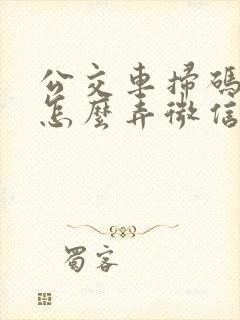 公交車掃碼
怎麼弄微信
蜀客